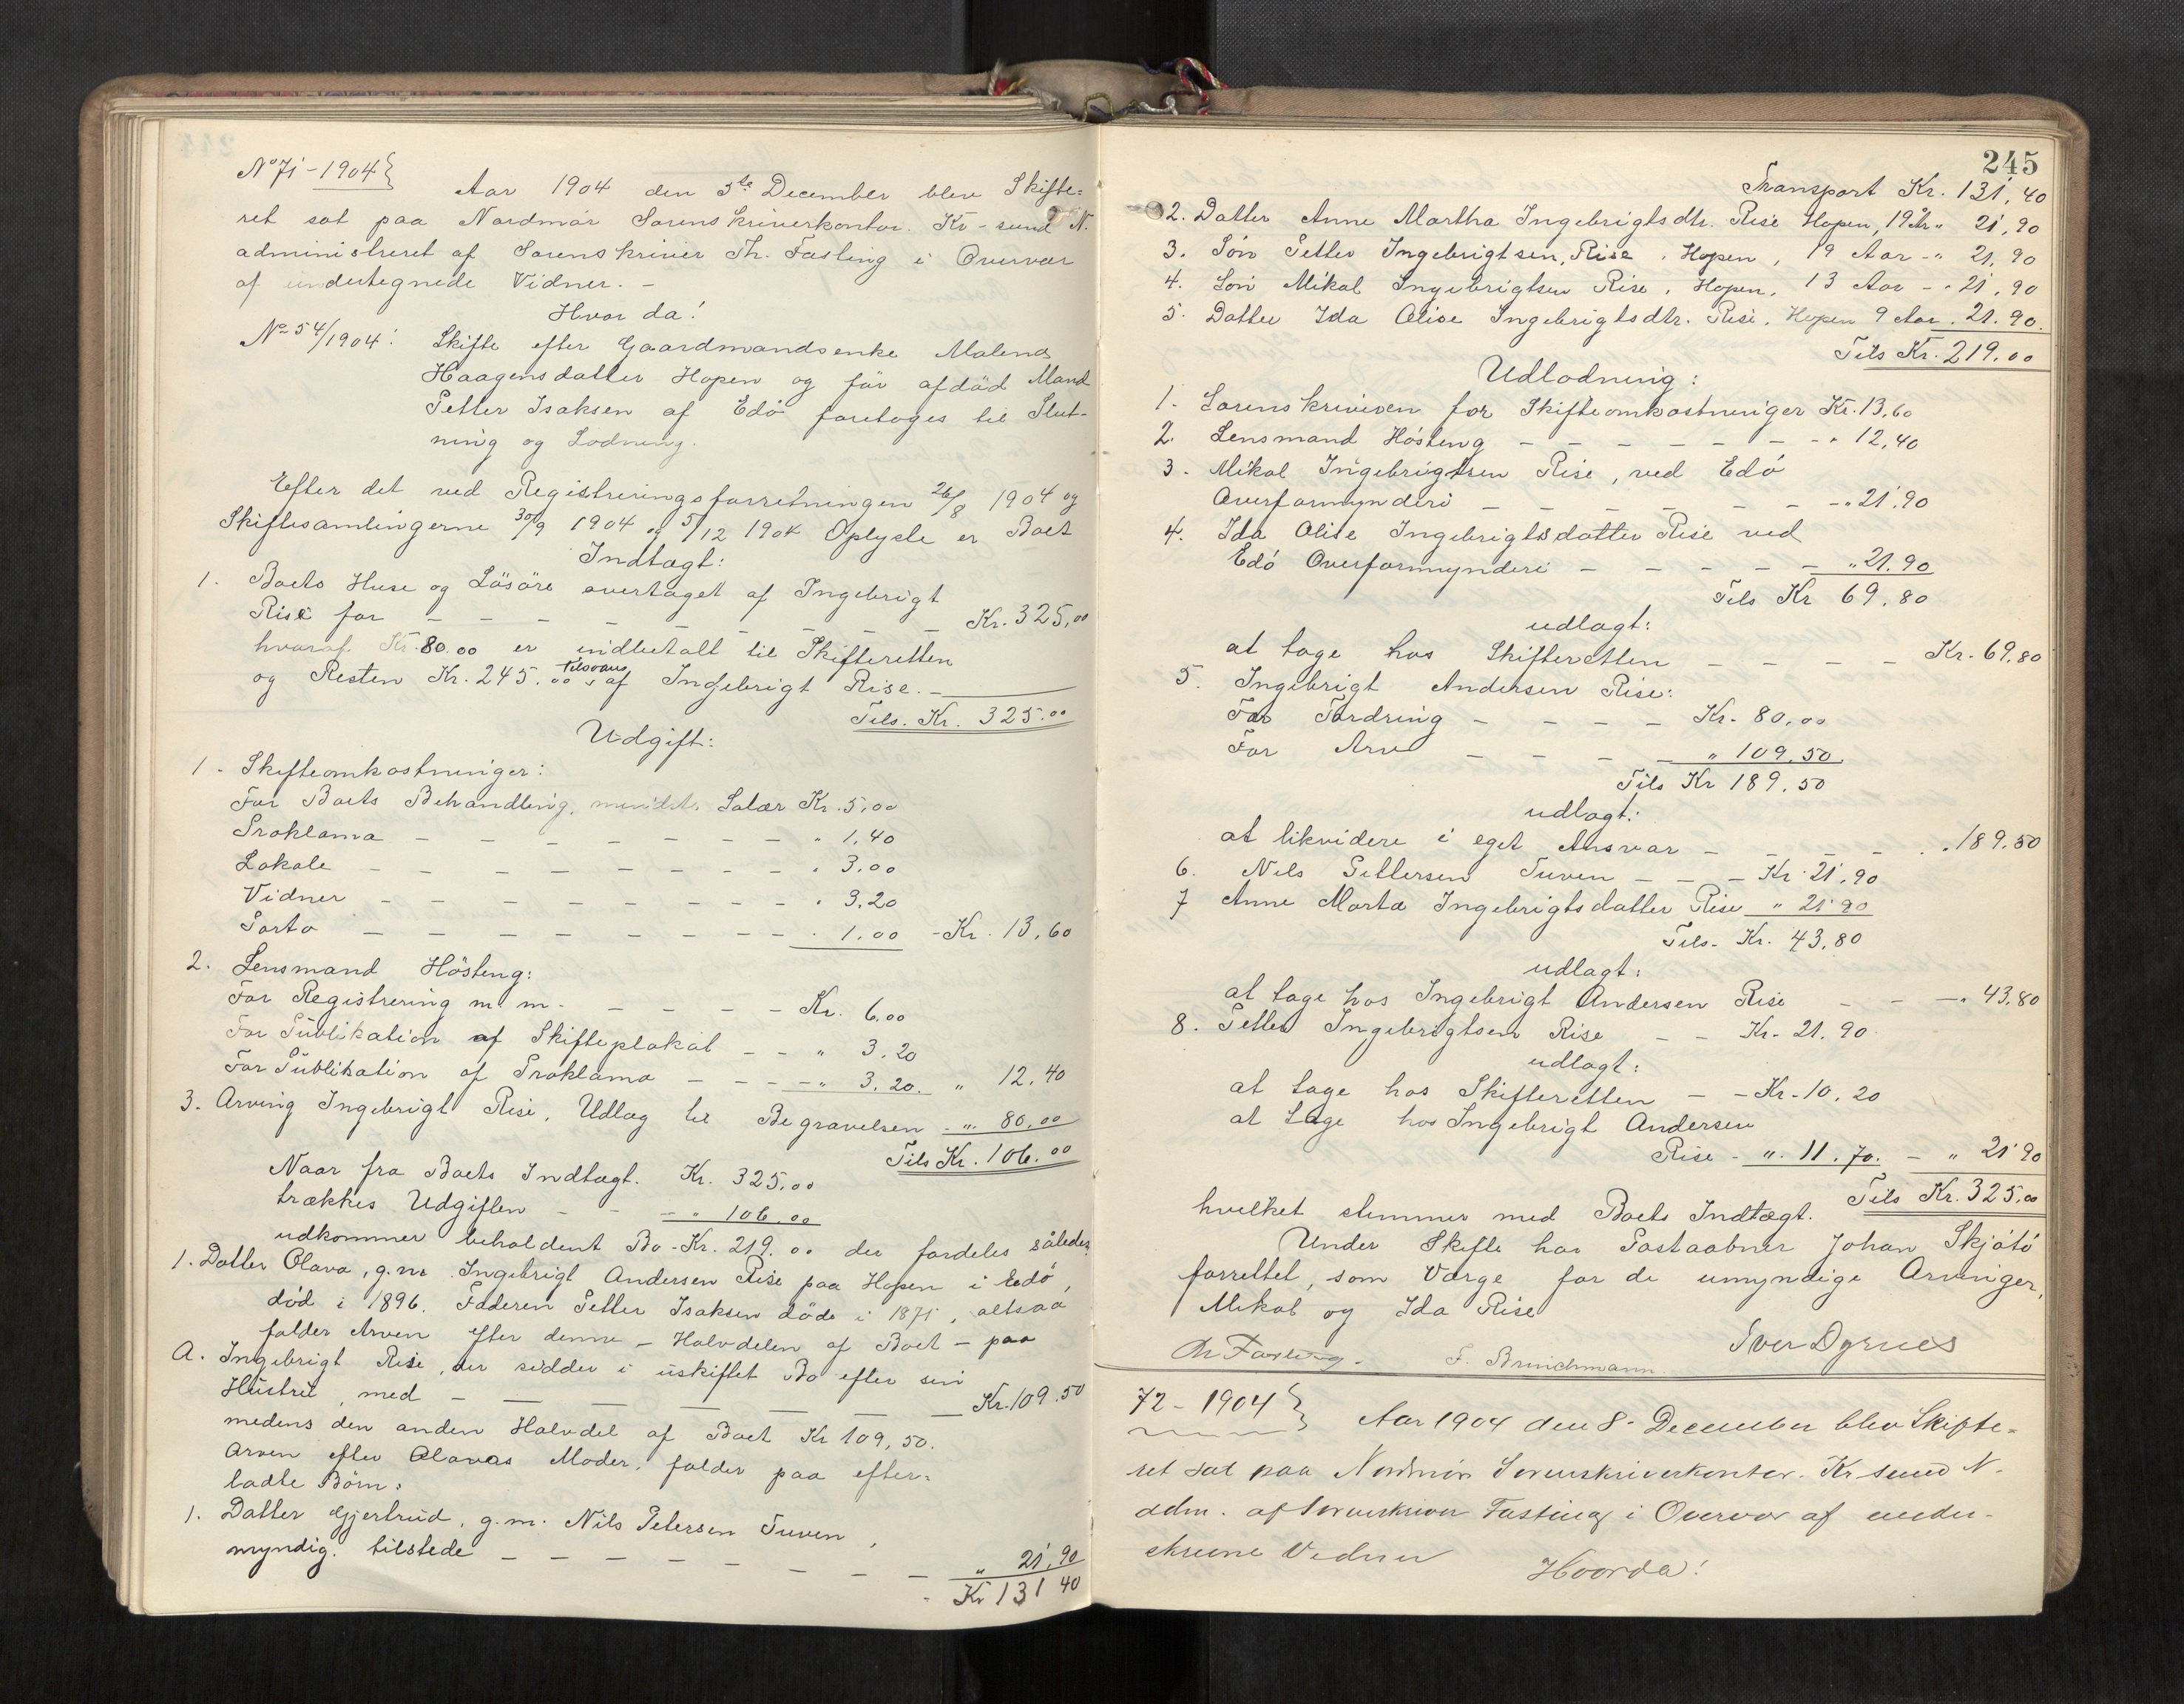 No 71 - 1904}
Aar 1904 den 5te December blev Skifte-
ret sat paa Nordmör Sorenskriverkontor. Kr-sund N.
administreret af Sorenskriver Th. Fasting i Overvær
af undertegnede Vidner. -
Hvor da!
No 54/1904: Skifte efter Gaardmandsenke Malena
Haagensdatter Hopen og før afdöd Mand
Petter Isaksen af Edö foretoges til Slut-
ning og Lodning.
Efter det ved Registreringsforretningen 26/8 1904 og
Skiftesamlingerne 30/9 1904 og 5/12 1904 Oplyste er Boets
Indtægt:
1. Boets Huse og Lösöre overtaget af Ingebrigt
Rise for - - - - - - - - Kr. 325,00
hvoraf Kr. 80.00 er indbetalt til Skifteretten
og Resten Kr. 245.00 tilsvares af Ingebrigt Rise. -
Tils. Kr. 325.00
Udgift:
1. Skifteomkostninger:
For Boets Behandling, mindste Salær Kr. 5,00
Proklama - - - - - - - " 1,40
Lokale - - - - - - - - " 3,00
Vidner - - - - - - - - " 3,20
Porto - - - - - - - - " 1.00 - Kr. 13,60
2. Lensmand Hösteng:
For Registrering m m. - - - - Kr. 6,00
For Publikation af Skifteplakat - - " 3.20
For Publikation af Proklama - - - - " 3.20. " 12,40
3. Arving Ingebrigt Rise, Udlæg til Begravelsen - " 80,00
Tils Kr. 106.00
Naar fra Boets Indtægt. Kr. 325,00
trækkes Udgiften - - - " 106.00
udkommer beholdent Bo - Kr. 219.00 der fordeles således
1. Datter Olava, g.m. Ingebrigt Andersen Rise paa Hopen i Edö,
död i 1896. Faderen Petter Isaksen döde i 1871, altsaa
falder Arven efter denne - Halvdelen af Boet - paa
A. Ingebrigt Rise, der sidder i uskiftet Bo efter sin
Hustru, med - - - - - - - Kr. 109.50
medens den anden Halvdel af Boet Kr 109,50.
Arven efter Olavas Moder, falder paa efter-
ladte Börn:
1. Datter Gjertrud, g.m. Nils Petersen Tuven,
myndig. tilstede - - - - - - - - " 21,90
Kr 131 40
245
Transport Kr. 131,40
2. Datter Anne Martha Ingebrigtsdtr. Rise Hopen, 19 År " 21,90
3. Sön Petter Ingebrigtsen, Rise, Hopen, 19 Aar - " 21,90
4. Sön Mikal Ingebrigtsen Rise, Hopen, 13 Aar - " 21,90
5. Datter Ida Olise Ingebrigtsdtr. Rise, Hopen 9 Aar. 21.90.
Tils Kr. 219.00
Udlodning:
1. Sorenskriveren for Skifteomkostninger Kr. 13,60
2. Lensmand Hösteng - - - - - - - " 12,40
3. Mikal Ingebrigtsen Rise, ved Edö
Overformynderi - - - - - - - " 21.90
4. Ida Olise Ingebrigtsdatter Rise ved
Edö Overformynderi - - - - - " 21.90
Tils Kr 69.80
udlagt:
at tage hos Skifteretten - - - - Kr. 69,80
5. Ingebrigt Andersen Rise:
For Fordring - - - - Kr. 80,00
For Arv - - - - " 109,50.
Tils Kr 189.50
udlagt:
at likvidere i eget Ansvar - - - - " 189.50
6. Nils Pettersen Tuven - - - Kr. 21,90
7 Anne Marta Ingebrigtsdatter Rise " 21.90
Tils. Kr. 43,80
udlagt:
at tage hos Ingebrigt Andersen Rise - - - " 43.80
8. Petter Ingebrigtsen Rise - - Kr. 21.90
udlagt:
at tage hos Skifteretten - - Kr. 10.20
at tage hos Ingebrigt Andersen
Rise - " 11.70. - " 21.90
Tils Kr. 325,00
hvilket stemmer med Boets Indtægt.
Under Skifte har Postaabner Johan Skjötö
forrettet, som Værge for de umyndige Arvinger,
Mikal og Ida Rise
Th Fasting. F. Brinchmann Iver Dyrnes
72 - 1904} Aar 1904 den 8. December blev Skifte-
ret sat paa Nordmör Sorenskriverkontor. Kr sund N.
adm. af Sorenskriver Fasting i Overvær af under-
skrevne Vidner
Hvorda!